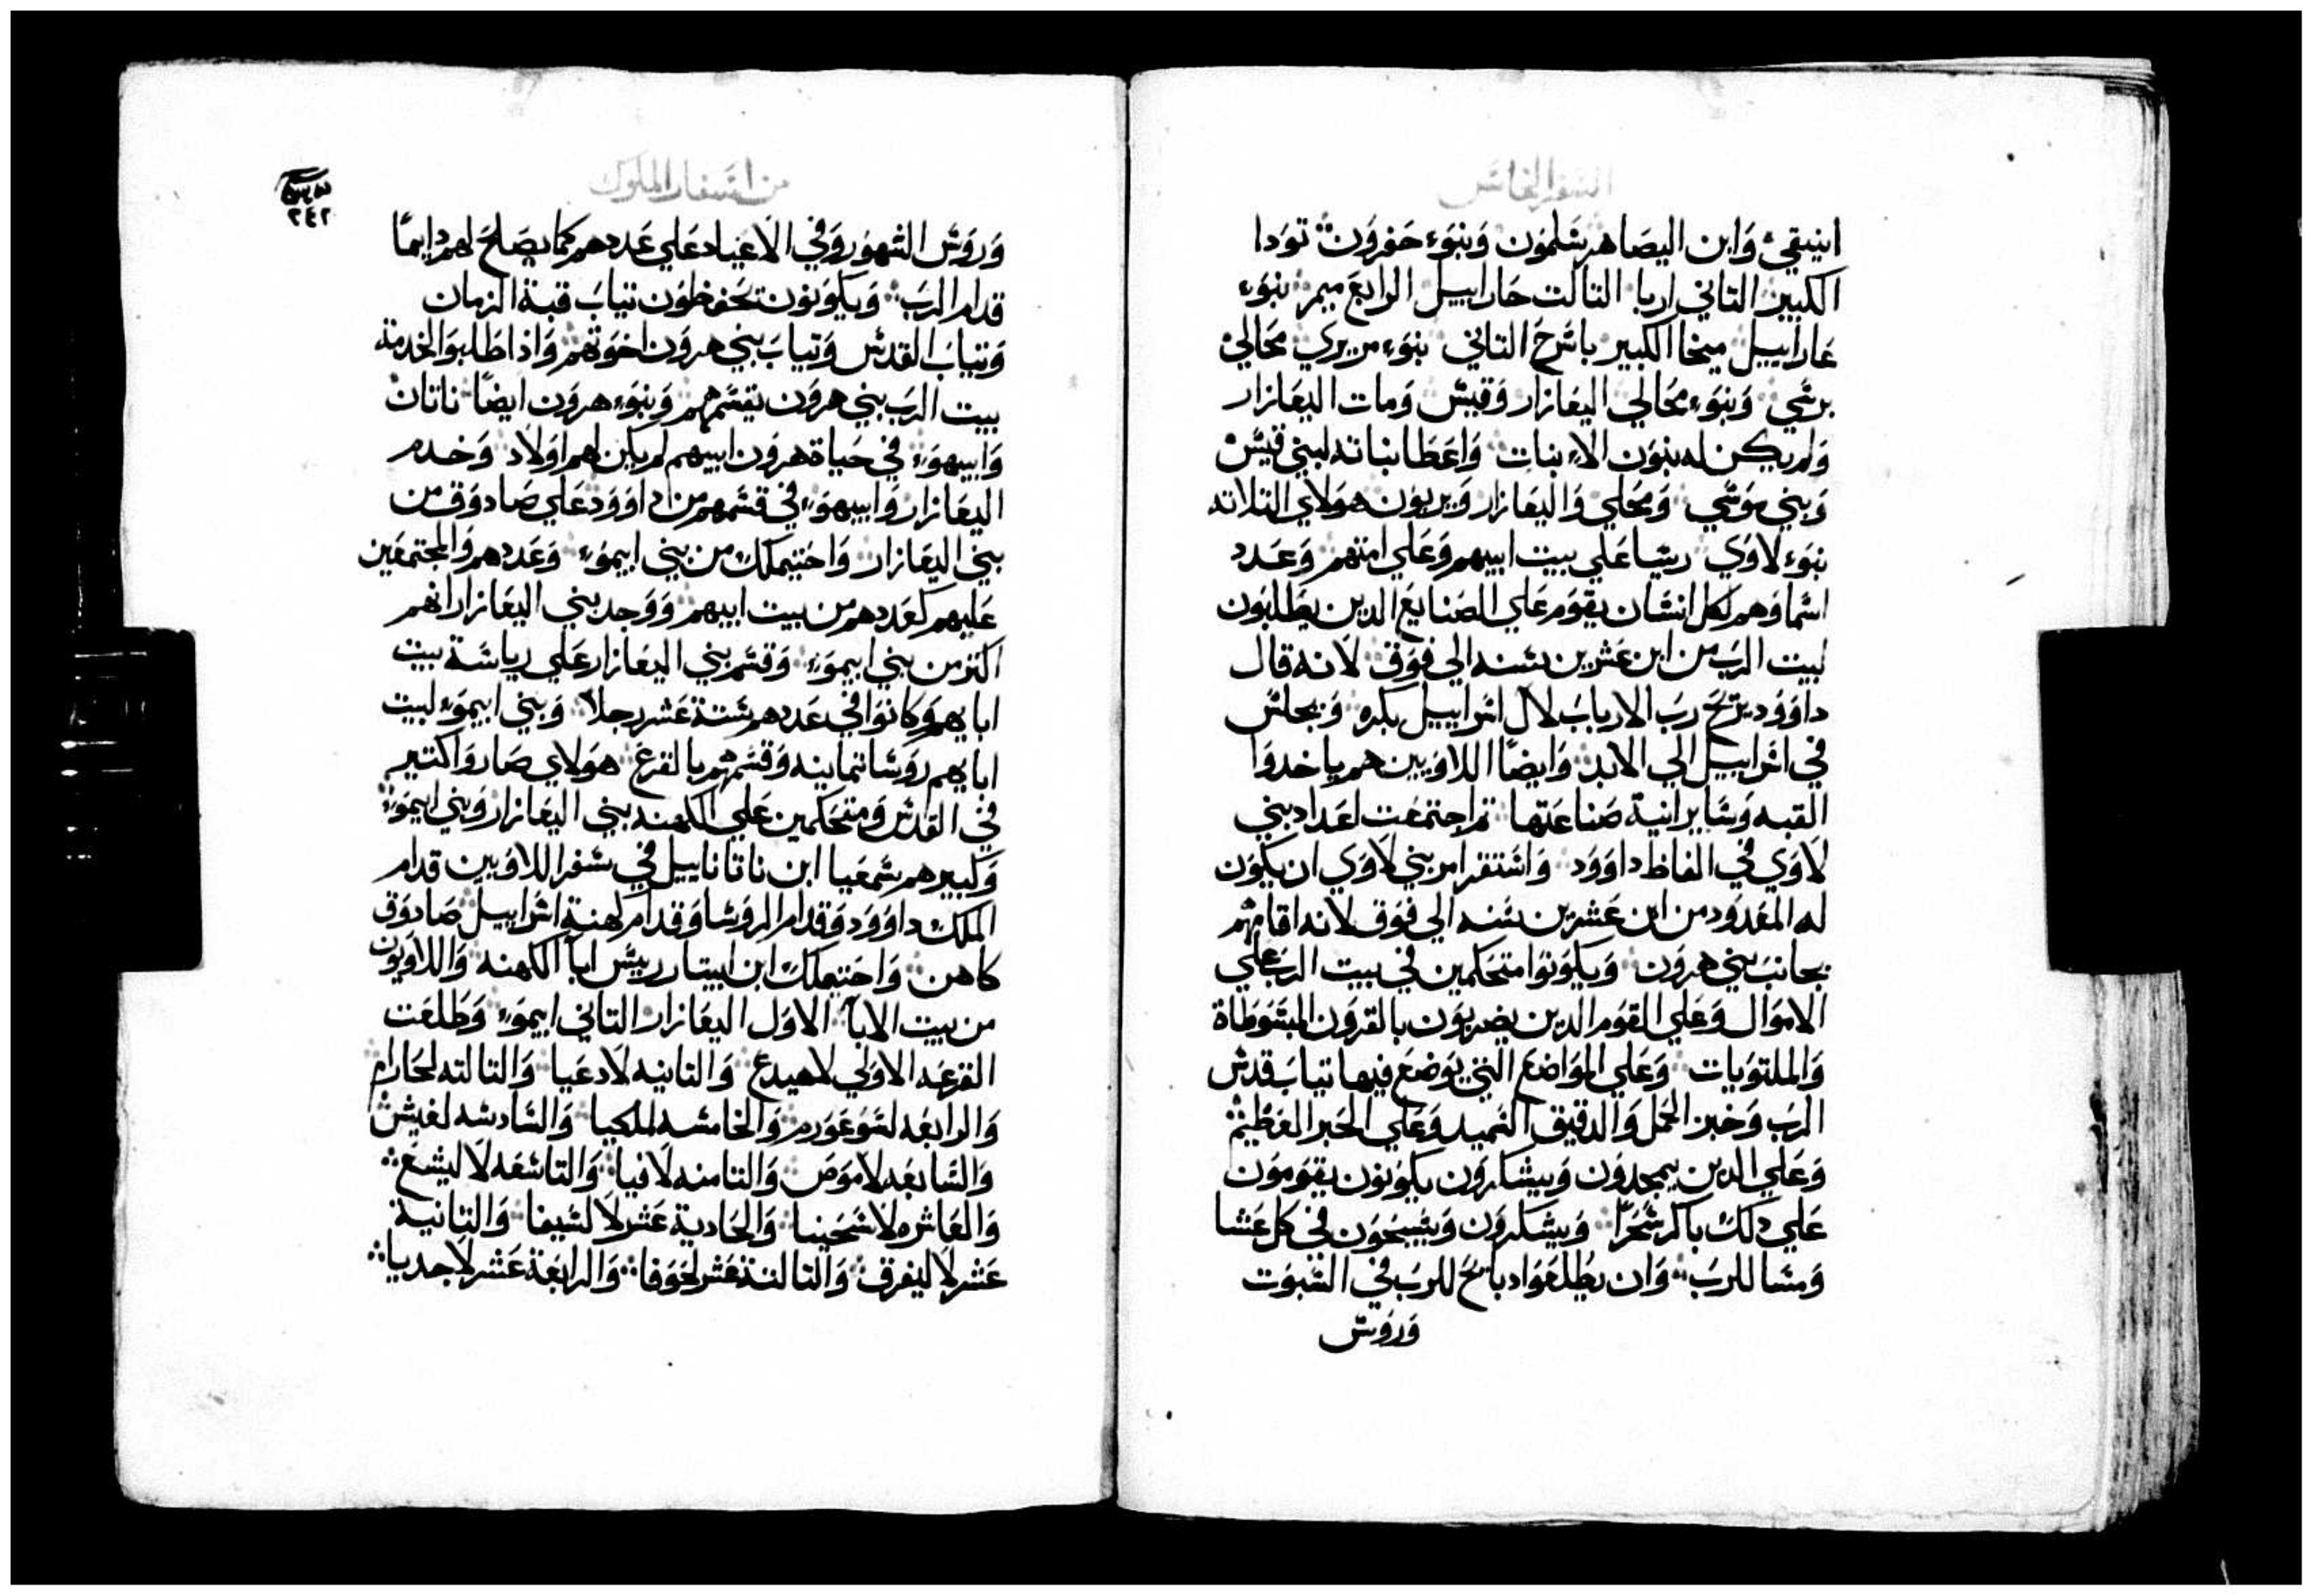 السفر الخامس
ابنيقي، وَابن اليصَاهر شلمَون وَبنوَء حَفرَون توَدا
الكبير التاني اربا التالت حَاراييل الرابعَ ميمر بنوَء
عَاراييل ميخا الكبير باشرحَ التاني بنوَء مريري محَالي
برشي وَبنوَء محَالي اليعَازار وَقيسَ وَمات اليعَازار
وَلم يكن له بنوَن الاء بنات وَاعَطَا بناته لبني قيسَ
وَبني موَشي وَمحَلي وَاليعَازار وَيربوَن هوَلاي التلاته
بنوَء لاوَي ريسَا عَلي بيت ابيهم وَعَلي امتهم وَعَدد
اسَماوَهم لكل انسَان يقوَم عَلي الصَنايع الدين يطَلبوَن
لبيت الربَ من ابن عَشرين سَنه الي فوَق لانه قال
داوَوَد يريحَ ربَ الاربابَ لال اسَراييل بكره وَيجلسَ
في اسَراييل الي الابد وَايضًا اللاوَيين هم ياخدوَا
القبه وَسَايرانية صَناعَتها تم اجتمعَت اعَداد بني
لاوَي في الفاظ داوَوَد وَاسَتقر امر بني لاوَي ان يكوَن
له المعَدوَد من ابن عَشرين سَنه الي فوَق لانه اقامهم
بجانبَ بني هروَن وَيكوَنوَا متحَكمين في بيت الربَ عَلي
الاموَال وَعَلي القوَم الدين يضربوَن بالقروَن المبسَوَطَاة
وَالملتوَيات وَعَلي الموَاضعَ التي يوَضعَ فيها تيابَ قدسَ
الربَ وَخبز الحمَل وَالدقيق السَميد وَعَلي الخبز العَظيم
وَعَلي الدين يمجدوَن وَيشكروَن يكوَنوَن يقوَموَن
عَلي دلك باكر سَحَرًا وَيشكروَن وَيسَبحَوَن في كل عَشا
وَمسَا للربَ وَان يطَلعَوَا دبايحَ للربَ في السَبوَت
وَروَسَ
من اسَفار الملوك
٢٤٢
وَروَسَ الشهوَر وَفي الاعَياد عَلي عَددهم كما يصَلحَ لهم دايمًا
قدام الربَ وَيكوَنوَن تحَفظوَن تيابَ قبة الزمان
وَتيابَ القدسَ وَتيابَ بني هروَن اخوَتهم وَاذا طَلبوَا لخدمة
بيت الربَ بني هروَن يقسَمهم وَبنوَء هروَن ايضًا ناتان
وَابيهوَء في حَياة هروَن ابيهم لم يكن لهم اوَلاد وَخدم
اليعَازار وَابيهوَء في قسَمهم من داوَوَد عَلي صَادوَق من
بني اليعَازار وَاختيملك من بني ايبموَء وَعَددهم وَالمجتمعَين
عَليهم كعَددهم من بيت ابيهم وَوَجد بني اليعَازار انهم
اكتر من بني ايبموَء وَقسَم بني اليعَازار عَلي رياسَة بيت
ابايهم وَكانوَا في عَددهم سَتة عَشر رجلًا وَبني ايبموَء لبيت
ابايهم روَسَا تمانيه وَقسَمهم بالقرعَ هوَلاي صَاروَا كتير
في القدسَ وَمتحَكمين عَلي الكهنه بني اليعَازار وَبني ايبموَء
وَكبيرهم سَمعَيا ابن ناتاناييل في سَفر اللاوَيين قدام
الملك داوَوَد وَقدام الروَسَا وَقدام كهنة اسَراييل صَادوَق
كاهن وَاختيملك ابن ابيتار رييسَ ابا الكهنه وَاللاوَيوَن
من بيت الابا الاوَل اليعَازار التاني ايبموَء وَطَلعَت
القرعَه الاوَلي لاهيدعَ وَالتانيه لادعَيا وَالتالته لحَارام
وَالرابعَه لسَوَعَوَرم وَالخامسَه للملكيا وَالسَادسَه لغيسَن
وَالسَابعَه لاموَصَ وَالتامنه لافيا وَالتاسَعَه لاليشعَ
وَالعَاشره لاسَحَينا وَالحَادية عَشر لالسَيفا وَالتانية
عَشر لاليفرق وَالتالتة عَشر لحَوَفا وَالرابعَة عَشر لاجديا